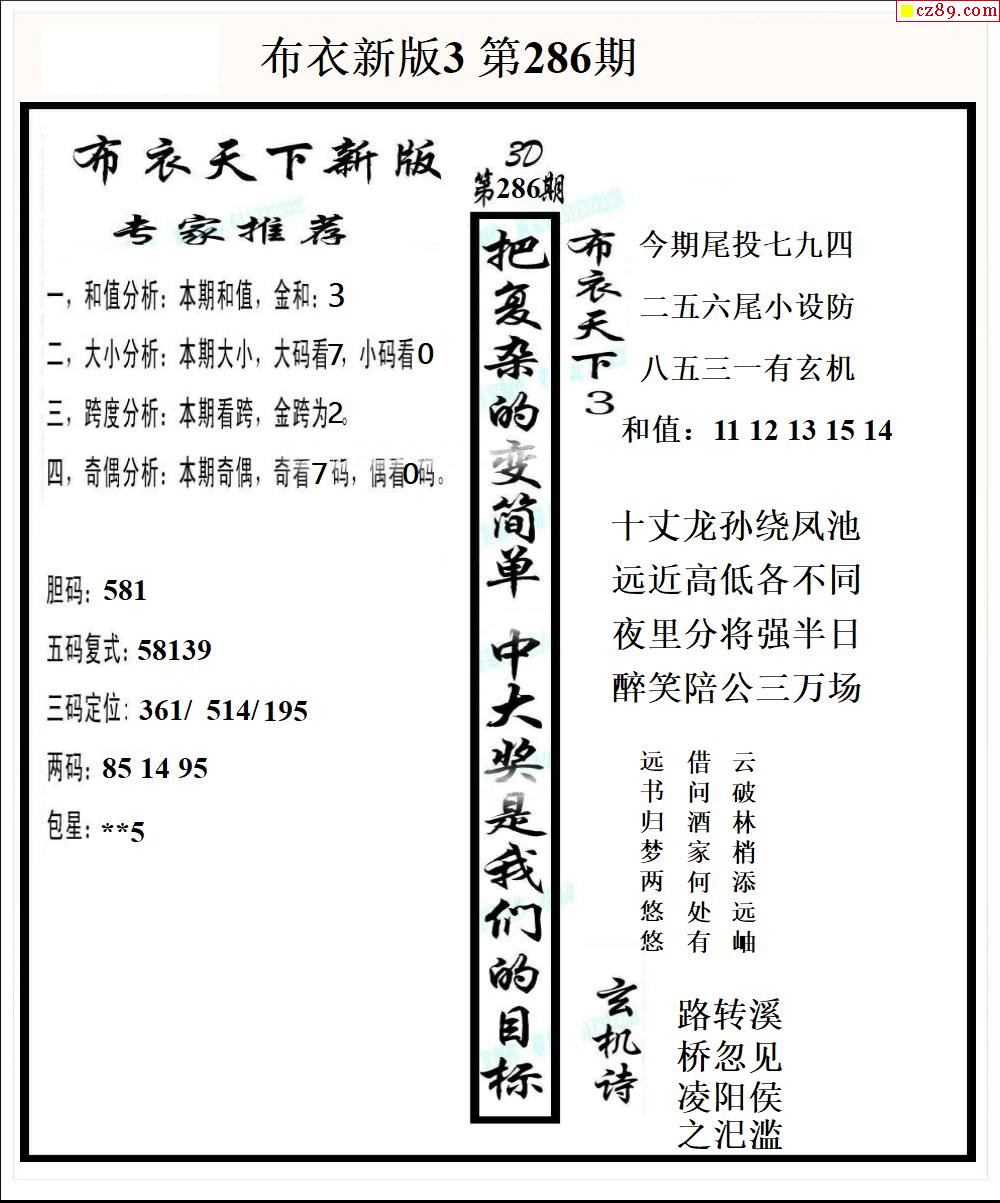 cz89.com
布衣新版3 第286期
布衣天下新版
专家推荐
一，和值分析：本期和值，金和：3
二，大小分析：本期大小，大码看7，小码看0
三，跨度分析：本期看跨，金跨为2。
四，奇偶分析：本期奇偶，奇看7码，偶看0码。
胆码：581
五码复式：58139
三码定位：361/ 514/ 195
两码：85 14 95
包星：**5
3D
第286期
把复杂的变简单 中大奖是我们的目标
布衣天下3
今期尾投七九四
二五六尾小设防
八五三一有玄机
和值：11 12 13 15 14
十丈龙孙绕凤池
远近高低各不同
夜里分将强半日
醉笑陪公三万场
云破林梢添远岫
借问酒家何处有
远书归梦两悠悠
玄机诗
路转溪
桥忽见
凌阳侯
之汜滥